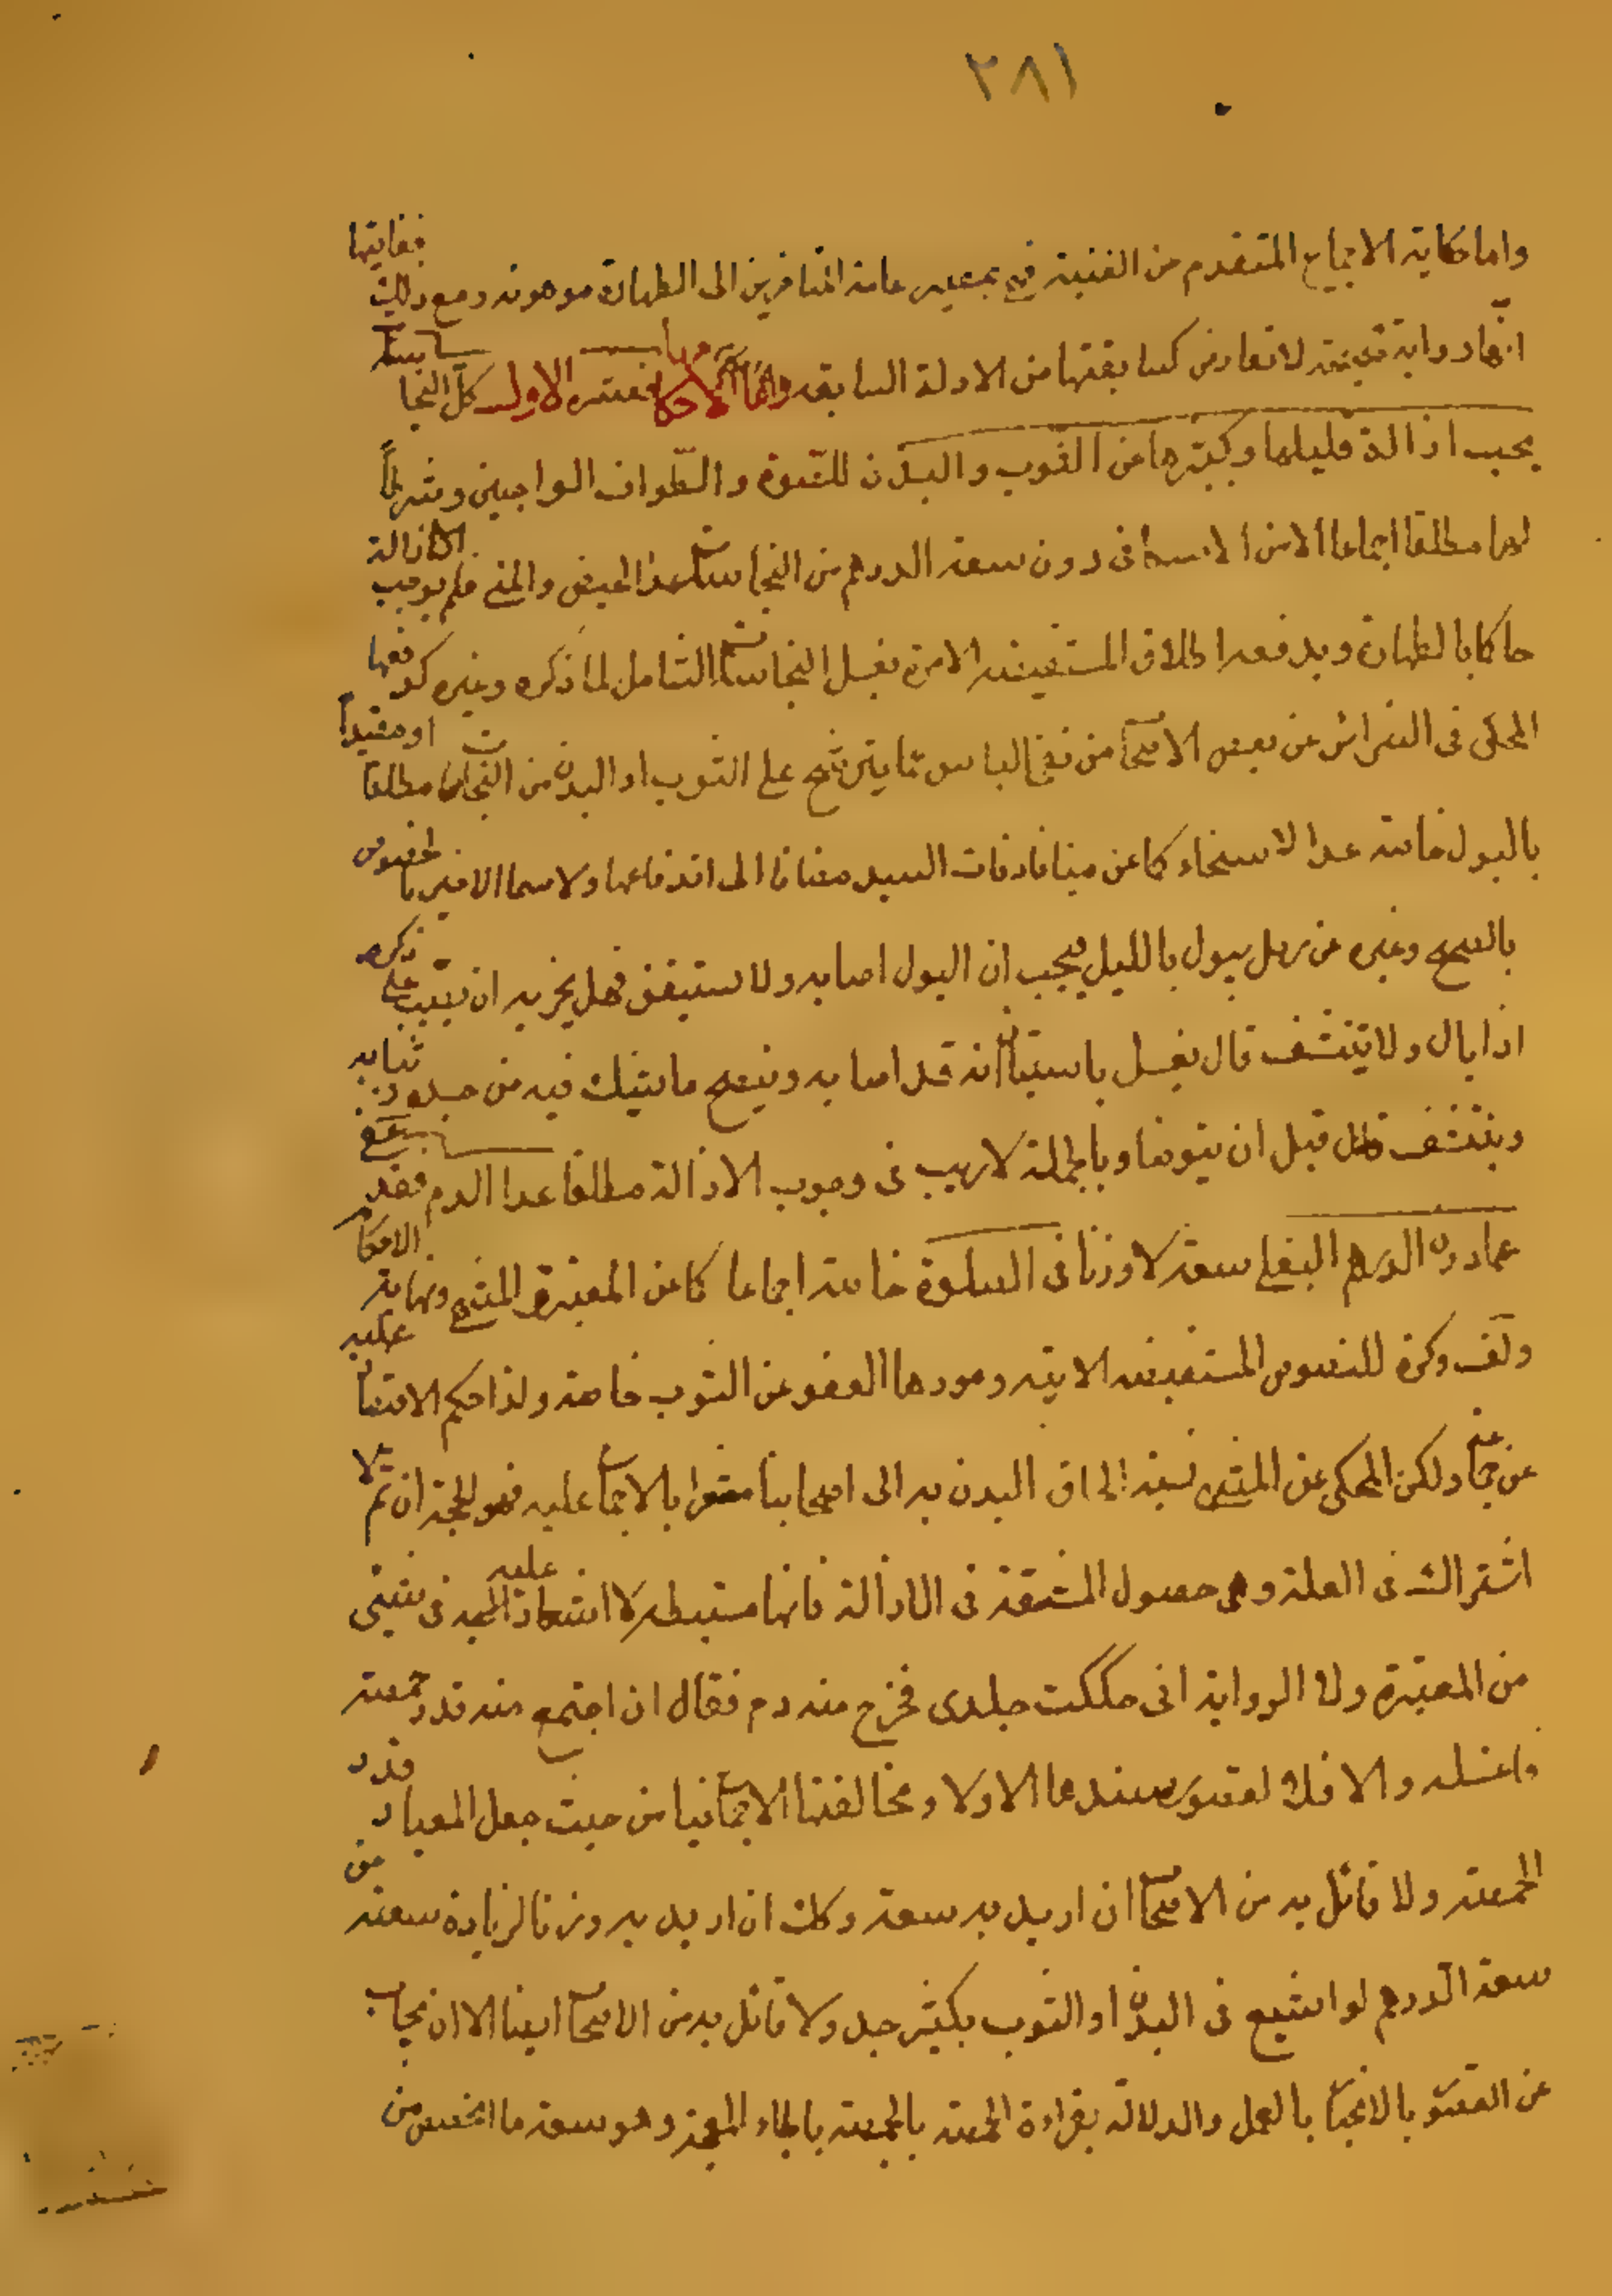 ٢٨١
واما حكاية الاجماع المتقدم من الغنية فهي بمصير عامة المتأخرين الى الطهارة موهونة ومع ذلك فغايتها
انها رواية صحيحة لا تعارض كسابقتها من الادلة السابقة واما الاحكام فعشرة الاول كل النجاسات
يجب ازالة قليلها وكثيرها عن الثوب والبدن للصلوة والطواف الواجبين وشرطا
لهما مطلقا اجماعا الا من الاسكافي دون سعة الدرهم من النجاسات عدا الحيض والمني فلم يوجب الازالة
حاكما بالطهارة ويدفعه اطلاق المستفيضة الامرة بغسل النجاسات الشامل لما ذكره وغيره كدفعها
المحكي في السرائر عن بعض الاصحاب من نفي الباس عما يترشح على الثوب او البدن من النجاسات مطلقا او مقيدا
بالبول خاصة عدا الاستنجاء كما عن ميافارقيات السيد مضافا الى اندفاعها ولا سيما الاخير بالخصوص
بالصحيح وغيره عن رجل يبول بالليل فيحسب ان البول اصابه ولا يستيقن فهل يجزيه ان يصب على ذكره
اذا بال ولا يتنشف قال يغسل ما استبان انه قد اصابه وينضح ما يشك فيه من جسده وثيابه
ويتنشف قبل ان يتوضا وبالجملة لا ريب في وجوب الازالة مطلقا عدا الدم فقد عفي
عما دون الدرهم البغلي سعة لا وزنا في الصلوة خاصة اجماعا كما عن المعتبر والمنتهى ونهاية الاحكام
ولف وكرة للنصوص المستفيضة الاتية وموردها العفو عن الثوب خاصة ولذا حكم الاقتصار عليه
عن جماعة ولكن المحكي عن المنتهى نسبة الحاق البدن به الى اصحابنا مشعرا بالاجماع عليه فهو الحجة ان تم لا
اشتراك في العلة وهي حصول المشقة في الازالة فانها مستنبطة لا اشعار عليه في شيء
من المعتبرة ولا الرواية اني حككت جلدي فخرج منه دم فقال ان اجتمع منه قدر حمصة
فاغسله والا فلا لقصور سندها اولا ومخالفتها الاجماع ثانيا من حيث جعل المعيار قدر
الحمصة ولا قائل به من الاصحاب ان اريد به سعة وكك ان اريد به وزنا لزيادة سعته من
سعة الدرهم لو اشيع في البدن او الثوب بكثير جدا ولا قائل به من الاصحاب ايضا الا ان يجاب
عن القصور بالانجبار بالعمل والدلالة بقراءة الحمصة بالخمصة بالخاء المعجمة وهو سعة ما انخفض من